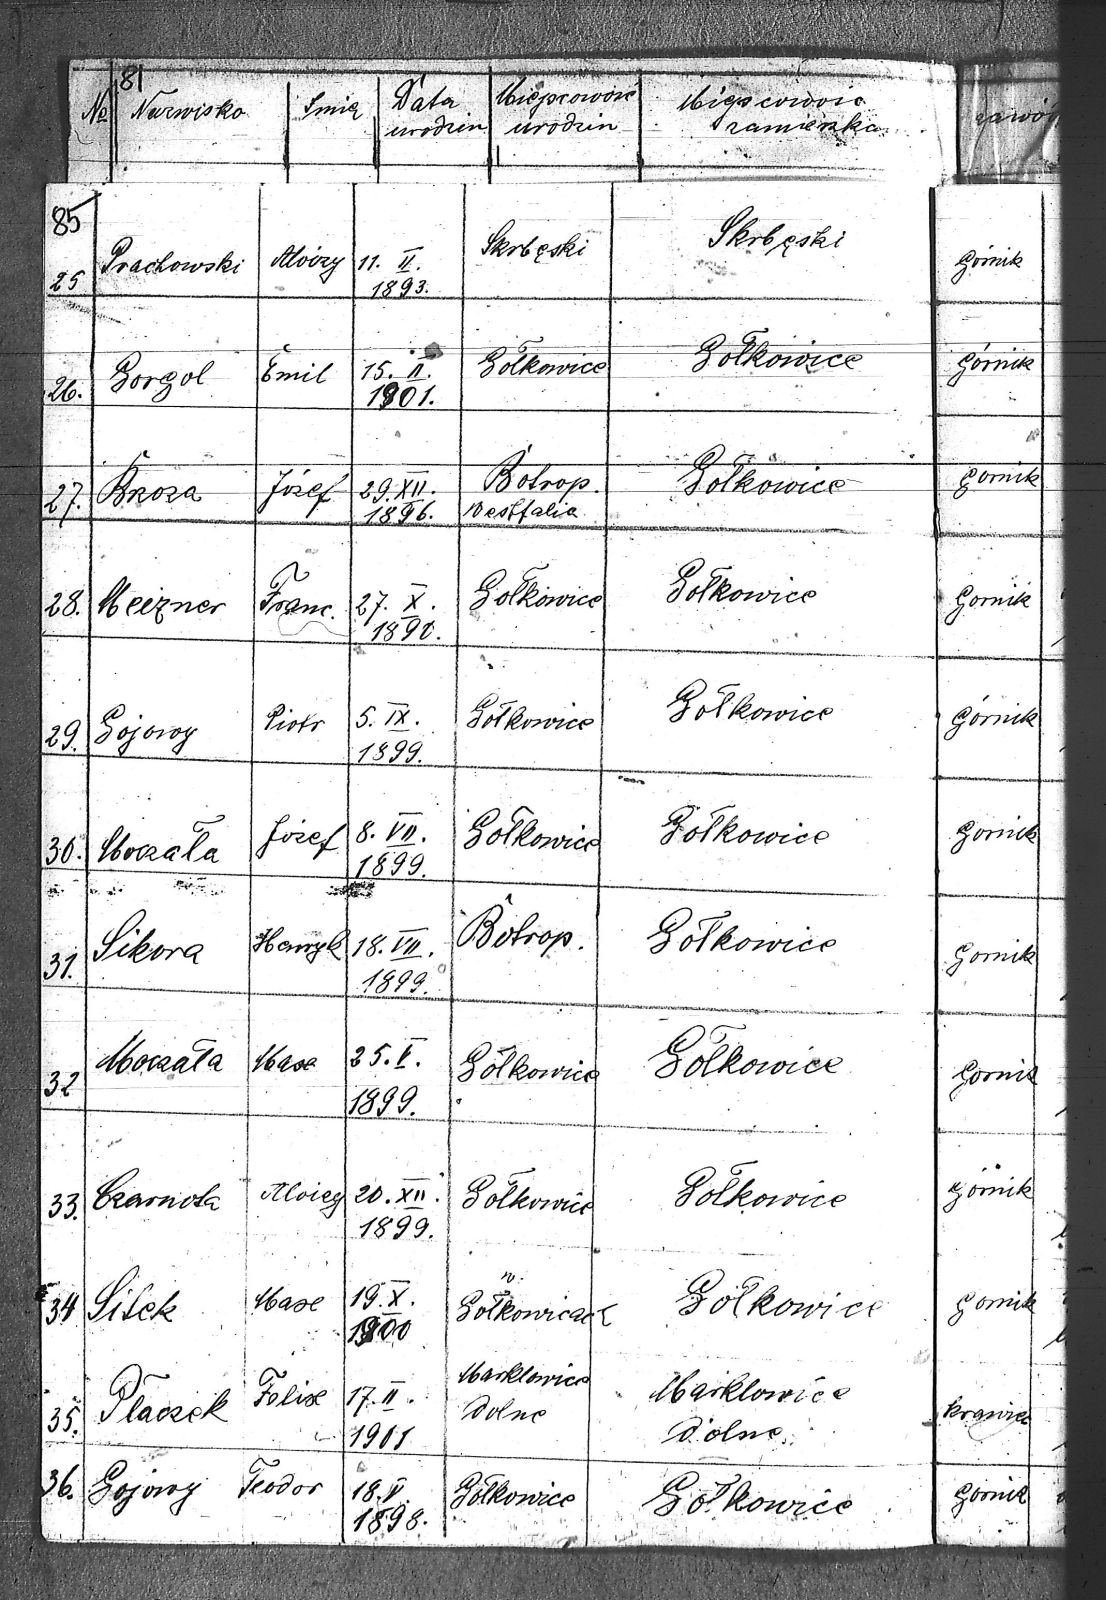 81
№ Nazwisko Imię Data urodzin Miejscowość urodzin Miejscowość zamieszka zawó
85
25 Prachowski Aloizy 11. II. 1893. Skrbęski Skrbęski Górnik
26. Gorgol Emil 15. II. 1901. Gołkowice Gołkowice Górnik
27. Brzoza Józef 29. XII. 1896. Botrop. Westfalia Gołkowice Gornik
28. Meizner Franc. 27. X. 1890. Gołkowice Gołkowice Gornik
29. Gojowy Piotr 5. IX. 1899. Gołkowice Gołkowice Górnik
30. Moczała Józef 8. VII. 1899. Gołkowice Gołkowice Gornik
31. Sikora Henryk 18. VII. 1899. Botrop. Gołkowice Gornik
32 Moczała Max 25. V. 1899. Gołkowice Gołkowice Gornik
33. Czarnota Aloizy 20. XII. 1899. Gołkowice Gołkowice Górnik
34 Sitek Max 19. X. 1900 w Gołkowicach Gołkowice Gornik
35. Płaczek Felix 17. II. 1901 Marklowice dolne Marklowice dolne krawiec
36. Gojowy Teodor 18. V. 1898. Gołkowice Gołkowice Gornik